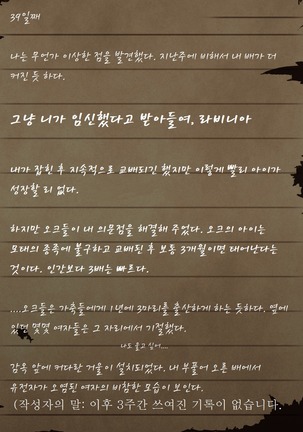 39일째
나는 무언가 이상한 점을 발견했다. 지난주에 비해서 내 배가 더
커진 듯 하다.
그냥 니가 임신했다고 받아들여, 라비니아
내가 잡힌 후 지속적으로 교배되긴 했지만 이렇게 빨리 아이가
성장할 리 없다.
하지만 오크들이 내 의문점을 해결해 주었다. 오크의 아이는
모태의 종족에 불구하고 교배된 후 보통 3개월이면 태어난다는
것이다. 인간보다 3배는 빠르다.
....오크들은 가축들에게 1년에 3마리를 출산하게 하는 듯하다. 옆에
있던 몇몇 여자들은 그 자리에서 기절했다.
나도 울고 싶어...
감옥 앞에 커다란 거울이 설치되었다. 내 부풀어 오른 배에서
유전자가 오염된 여자의 비참한 모습이 보인다.
(작성자의 말: 이후 3주간 쓰여진 기록이 없습니다.